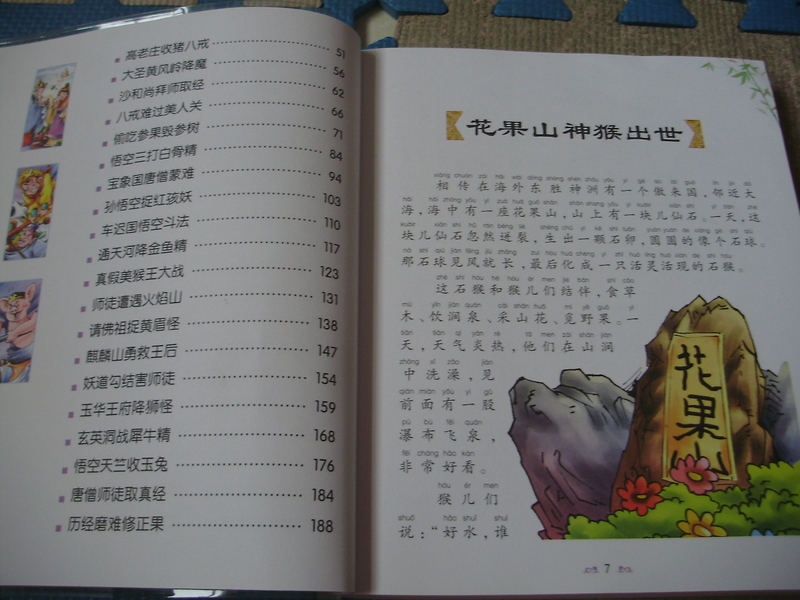 高老庄收猪八戒 51
大圣黄风岭降魔 56
沙和尚拜师取经 62
八戒难过美人关 66
偷吃参果毁参树 71
悟空三打白骨精 84
宝象国唐僧蒙难 94
孙悟空捉红孩妖 103
车迟国悟空斗法 110
通天河降金鱼精 117
真假美猴王大战 123
师徒遭遇火焰山 131
请佛祖捉黄眉怪 138
麒麟山勇救王后 147
妖道勾结害师徒 154
玉华王府降狮怪 159
玄英洞战犀牛精 168
悟空天竺收玉兔 176
唐僧师徒取真经 184
历经磨难修正果 188
花果山神猴出世
相传在海外东胜神洲有一个傲来国,邻近大
海,海中有一座花果山,山上有一块儿仙石。一天,这
块儿仙石忽然迸裂,生出一颗石卵,圆圆的像个石球。
那石球见风就长,最后化成一只活灵活现的石猴。
这石猴和猴儿们结伴,食草
木、饮涧泉、采山花、觅野果。一
天,天气炎热,他们在山涧
中洗澡,见
前面有一股
瀑布飞泉,
非常好看。
猴儿们
说:“好水,谁
花果山
7